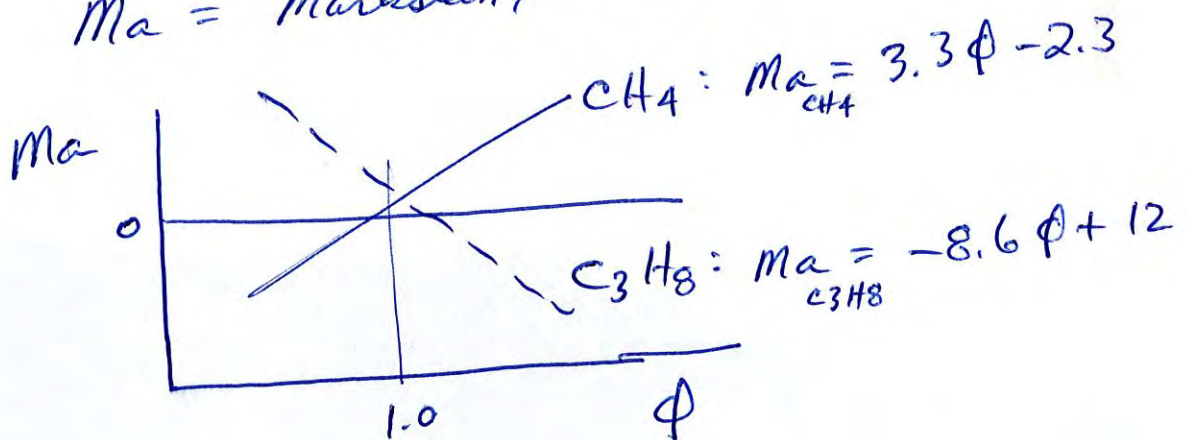 Ma =
CH4 : Ma CH4 = 3.3 ϕ - 2.3
Ma
0
C3H8 : Ma C3H8 = -8.6 ϕ + 12
1.0 ϕ